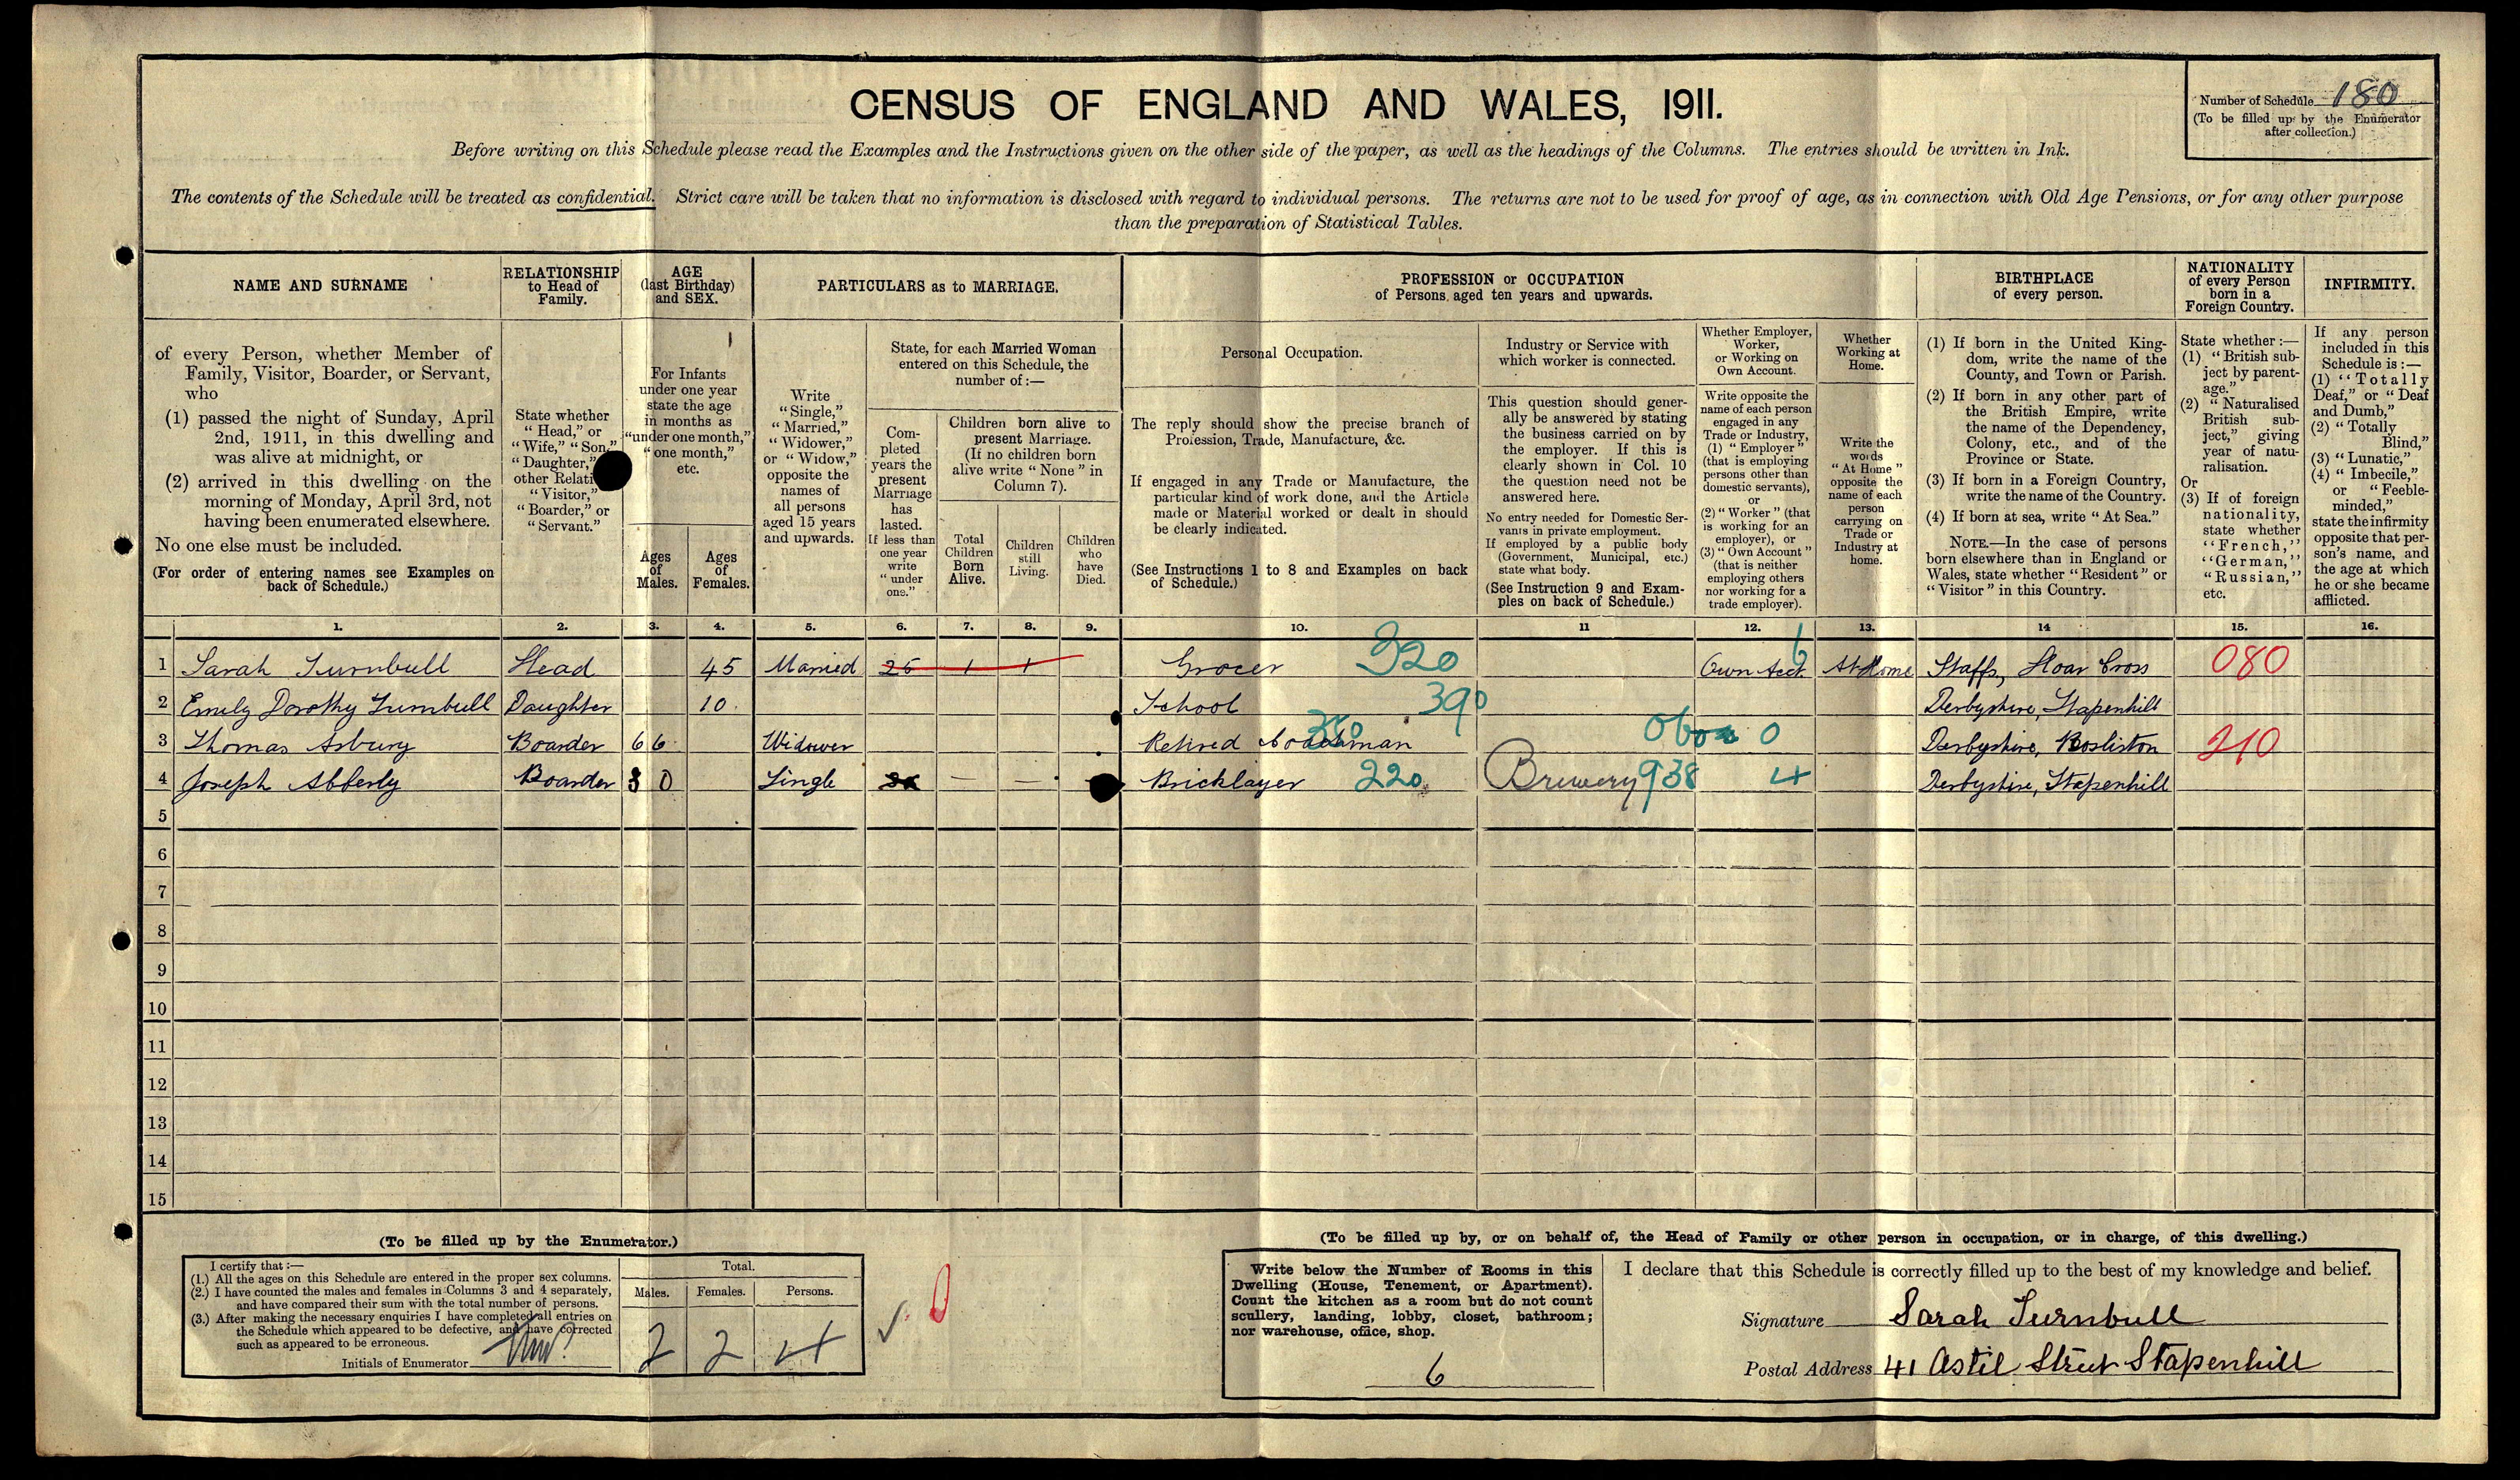 CENSUS OF ENGLAND AND WALES, 1911.
Number of Schedule 180
(To be filled up by the Enumerator
after collection.)
Before writing on this Schedule please read the Examples and the Instructions given on the other side of the paper, as well as the headings of the Columns. The entries should be written in Ink.
The contents of the Schedule will be treated as confidential. Strict care will be taken that no information is disclosed with regard to individual persons. The returns are not to be used for proof of age, as in connection with Old Age Pensions, or for any other purpose
than the preparation of Statistical Tables.
NAME AND SURNAME
of every Person, whether Member of
Family, Visitor, Boarder, or Servant,
who
(1) passed the night of Sunday, April
2nd, 1911, in this dwelling and
was alive at midnight, or
(2) arrived in this dwelling on the
morning of Monday, April 3rd, not
having been enumerated elsewhere.
No one else must be included.
(For order of entering names see Examples on
back of Schedule.)
RELATIONSHIP
to Head of
Family.
State whether
"Head," or
"Wife," "Son,"
"Daughter,"
other Relati
"Visitor,"
"Boarder," or
"Servant."
AGE
(last Birthday)
and SEX.
For Infants
under one year
state the age
in months as
"under one month,"
"one month,"
etc.
Ages
of
Males.
Ages
of
Females.
PARTICULARS as to MARRIAGE.
Write
"Single,"
"Married,"
"Widower,"
or "Widow,"
opposite the
names of
all persons
aged 15 years
and upwards.
State, for each Married Woman
entered on this Schedule, the
number of:—
Com-
pleted
years the
present
Marriage
has
lasted.
If less than
one year
write
"under
one."
Children born alive to
present Marriage.
(If no children born
alive write "None" in
Column 7).
Total
Children
Born
Alive.
Children
still
Living.
Children
who
have
Died.
PROFESSION or OCCUPATION
of Persons aged ten years and upwards.
Personal Occupation.
The reply should show the precise branch of
Profession, Trade, Manufacture, &c.
If engaged in any Trade or Manufacture, the
particular kind of work done, and the Article
made or Material worked or dealt in should
be clearly indicated.
(See Instructions 1 to 8 and Examples on back
of Schedule.)
Industry or Service with
which worker is connected.
This question should gener-
ally be answered by stating
the business carried on by
the employer. If this is
clearly shown in Col. 10
the question need not be
answered here.
No entry needed for Domestic Ser-
vants in private employment.
If employed by a public body
(Government, Municipal, etc.)
state what body.
(See Instruction 9 and Exam-
ples on back of Schedule.)
Whether Employer,
Worker,
or Working on
Own Account.
Write opposite the
name of each person
engaged in any
Trade or Industry,
(1) "Employer"
(that is employing
persons other than
domestic servants),
or
(2) "Worker" (that
is working for an
employer), or
(3) "Own Account"
(that is neither
employing others
nor working for a
trade employer).
Whether
Working at
Home.
Write the
words
"At Home"
opposite the
name of each
person
carrying on
Trade or
Industry at
home.
BIRTHPLACE
of every person.
(1) If born in the United King-
dom, write the name of the
County, and Town or Parish.
(2) If born in any other part of
the British Empire, write
the name of the Dependency,
Colony, etc., and of the
Province or State.
(3) If born in a Foreign Country,
write the name of the Country.
(4) If born at sea, write "At Sea."
NOTE.—In the case of persons
born elsewhere than in England or
Wales, state whether "Resident" or
"Visitor" in this Country.
NATIONALITY
of every Person
born in a
Foreign Country.
State whether:—
(1) "British sub-
ject by parent-
age."
(2) "Naturalised
British sub-
ject," giving
year of natu-
ralisation.
Or
(3) If of foreign
nationality,
state whether
"French,"
"German,"
"Russian,"
etc.
INFIRMITY.
If any person
included in this
Schedule is:—
(1) "Totally
Deaf," or "Deaf
and Dumb,"
(2) "Totally
Blind,"
(3) "Lunatic,"
(4) "Imbecile,"
or "Feeble-
minded,"
state the infirmity
opposite that per-
son's name, and
the age at which
he or she became
afflicted.
1. 2. 3. 4. 5. 6. 7. 8. 9. 10. 11 12. 13. 14 15. 16.
1 Sarah Turnbull Head 45 Married 26 1 1 Grocer 320 Own Acct. 6 At Home Staffs, Hoar Cross 080
2 Emily Dorothy Turnbull Daughter 10 School 390 Derbyshire, Stapenhill
3 Thomas Asbury Boarder 66 Widower Retired Coachman 0 Derbyshire, Rosliston 210
4 Joseph Abberly Boarder 30 Single — — Bricklayer 220 Brewery 938 4 Derbyshire, Stapenhill
5
6
7
8
9
10
11
12
13
14
15
(To be filled up by the Enumerator.)
I certify that:—
(1.) All the ages on this Schedule are entered in the proper sex columns.
(2.) I have counted the males and females in Columns 3 and 4 separately,
and have compared their sum with the total number of persons.
(3.) After making the necessary enquiries I have completed all entries on
the Schedule which appeared to be defective, and have corrected
such as appeared to be erroneous.
Initials of Enumerator
Total.
Males. Females. Persons.
2 2 4
(To be filled up by, or on behalf of, the Head of Family or other person in occupation, or in charge, of this dwelling.)
Write below the Number of Rooms in this
Dwelling (House, Tenement, or Apartment).
Count the kitchen as a room but do not count
scullery, landing, lobby, closet, bathroom;
nor warehouse, office, shop.
6
I declare that this Schedule is correctly filled up to the best of my knowledge and belief.
Signature Sarah Turnbull
Postal Address 41 Astil Street Stapenhill